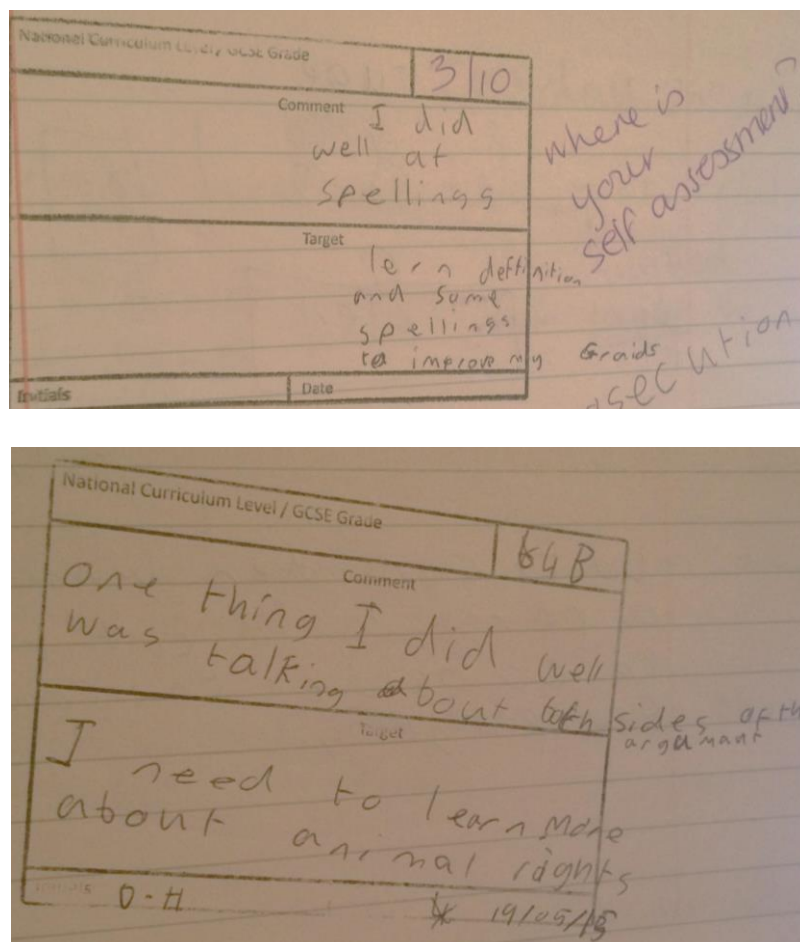 National Curriculum Level / GCSE Grade
3/10
Comment
I did
well at
spellings
where is
your
self assessment?
Target
lern deffinition
and some
spellings
to improve my Graids
secution
Initials
Date
National Curriculum Level / GCSE Grade
4B
Comment
One thing I did well
was talking about both sides of th
argumant
Target
I need to learn more
about animal rights
Initials
D-H
19/05/15